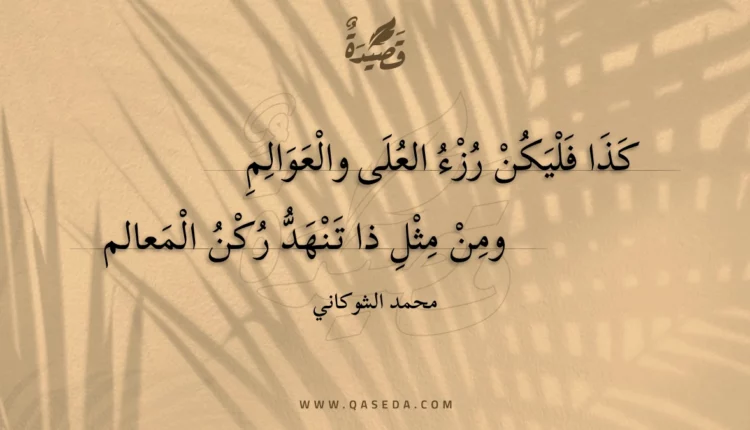 قَصِيدَةٌ
كَذَا فَلْيَكُنْ رُزْءُ العُلَى والْعَوَالِمِ
ومِنْ مِثْلِ ذا تَنْهَدُّ رُكْنُ الْمَعالم
محمد الشوكاني
WWW.QASEDA.COM